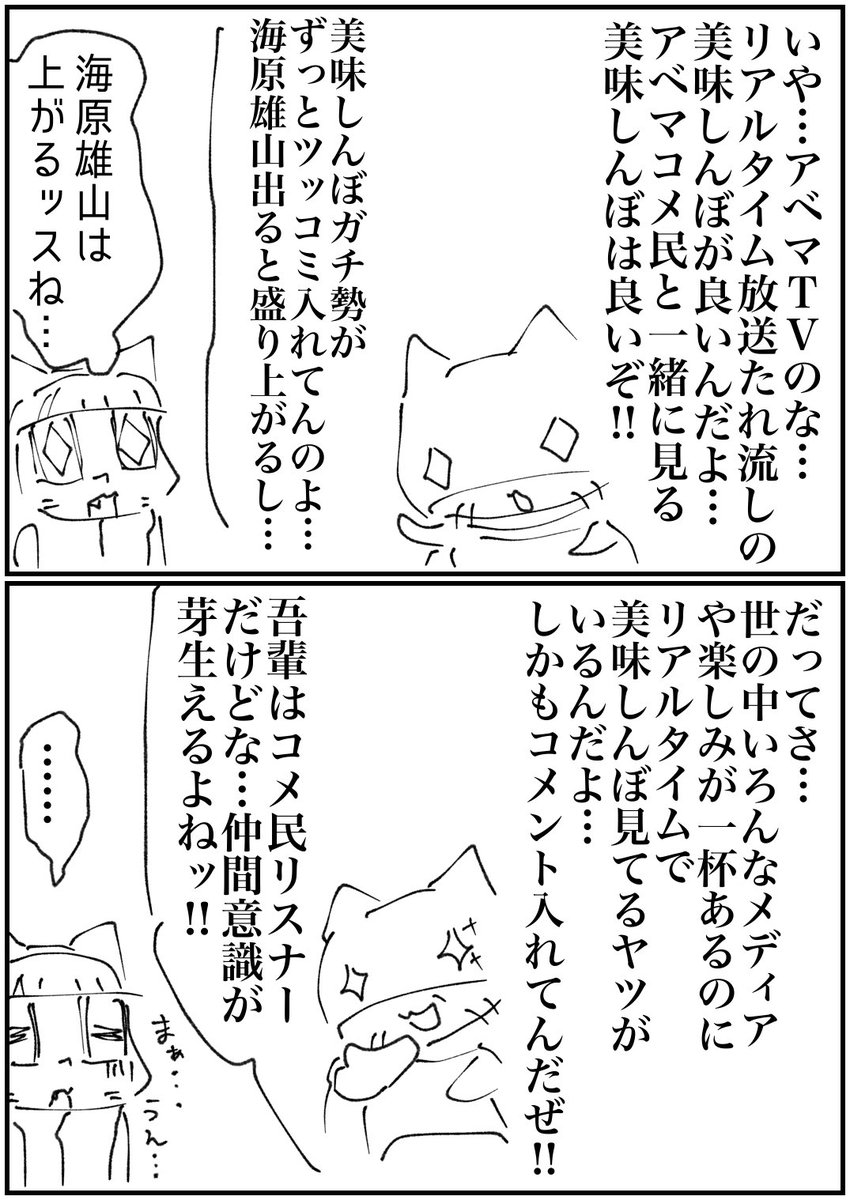 いや…アベマTVのな…
リアルタイム放送たれ流しの
美味しんぼが良いんだよ…
アベマコメ民と一緒に見る
美味しんぼは良いぞ!!
美味しんぼガチ勢が
ずっとツッコミ入れてんのよ…
海原雄山出ると盛り上がるし…
海原雄山は
上がるッスね…
だってさ…
世の中いろんなメディア
や楽しみが一杯あるのに
リアルタイムで
美味しんぼ見てるヤツが
いるんだよ…
しかもコメント入れてんだぜ!!
吾輩はコメ民リスナー
だけどな…仲間意識が
芽生えるよねッ!!
……
まぁ…
うん…